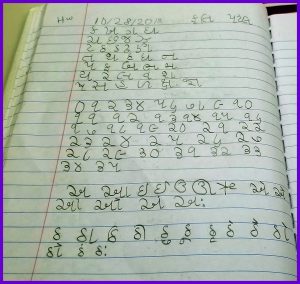 Hw 10/28/2018 પટેલ
ક ખ ગ ઘ
ચ છ જ ઝ
ટ ઠ ડ ઢ ણ
ત થ દ ધ ન
પ ફ બ ભ મ
ય ર લ વ શ
ષ સ હ ળ ક્ષ જ્ઞ
૦ ૧ ૨ ૩ ૪ ૫ ૬ ૭ ૮ ૯ ૧૦
૧૧ ૧૨ ૧૩ ૧૪ ૧૫ ૧૬
૧૭ ૧૮ ૧૯ ૨૦ ૨૧ ૨૨
૨૩ ૨૪ ૨૫ ૨૬ ૨૭
૨૮ ૨૯ ૩૦ ૩૧ ૩૨ ૩૩
૩૪ ૩૫
અ આ ઇ ઈ ઉ ઊ ઋ એ ઐ
ઓ ઔ અં અઃ
ક કા કિ કી કુ કૂ કૃ કે કૈ કો
કૌ કં કઃ